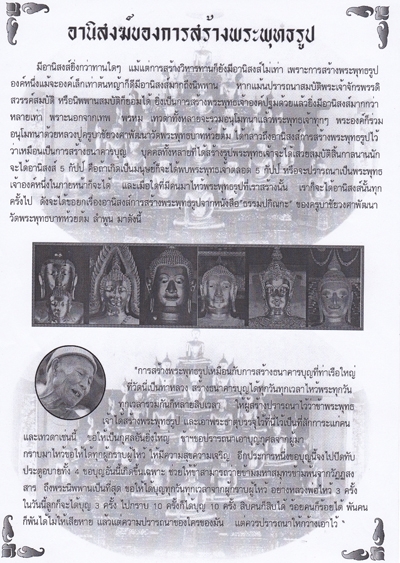 อานิสงฆ์ของการสร้างพระพุทธรูป
มีอานิสงส์ยิ่งกว่าทานใดๆ แม้แต่การสร้างวิหารทานก็ยังมีอานิสงส์ไม่เท่า เพราะการสร้างพระพุทธรูป
องค์หนึ่งแม้จะองค์เล็กเท่าต้นหญ้าก็ดีมีอานิสงส์มากถึงนิพพาน หากแม้นปรารถนาสมบัติพระเจ้าจักรพรรดิ
สวรรค์สมบัติ หรือนิพพานสมบัติก็ย่อมได้ ยิ่งเป็นการสร้างพระพุทธเจ้าองค์ปฐมด้วยแล้วยิ่งมีอานิสงส์มากกว่า
หลายเท่า เพราะนอกจากเทพ พรหม เทวดาทั้งหลายจะร่วมอนุโมทนาแล้วพระพุทธเจ้าทุกๆ พระองค์ก็ร่วม
อนุโมทนาด้วยหลวงปู่ครูบาชัยวงศาพัฒนาวัดพระพุทธบาทห้วยต้ม ได้กล่าวถึงอานิสงส์การสร้างพระพุทธรูปไว้
ว่าเหมือนเป็นการสร้างธนาคารบุญ บุคคลทั้งหลายที่ได้สร้างรูปพระพุทธเจ้าจะได้เสวยสมบัติสิ้นกาลนานนัก
จะได้อานิสงส์ 5 กัปป์ คือถาเกิดเป็นมนุษย์ก็จะได้พบพระพุทธเจ้าตลอด 5 กัปป์ หรือจะปรารถนาเป็นพระพุทธ
เจ้าองค์หนึ่งในภายหน้าก็จะได้ และเมื่อใดที่มีคนมาไหว้พระพุทธรูปที่เราสร้างนั้น เราก็จะได้อานิสงส์นั้นทุก
ครั้งไป ดังจะได้ขอยกเรื่องอานิสงส์การสร้างพระพุทธรูปจากหนังสือ"ธรรมปกิณกะ" ของครูบาชัยวงศาพัฒนา
วัดพระพุทธบาทห้วยต้ม ลำพูน มาดังนี้
"การสร้างพระพุทธรูปเหมือนกับการสร้างธนาคารบุญที่ท่าเรือใหญ่
ที่วัดนี้เป็นท่าหลวง สร้างธนาคารบุญได้ทุกวันทุกเวลาไหว้พระทุกวัน
ทุกเวลารวมกันก็หลายสิบเวลา ให้ผู้สร้างปรารถนาไว้ว่าข้าพระพุทธ
เจ้าได้สร้างพระพุทธรูป และเอาพระธาตุบรรจุไว้ที่นี้ไว้เป็นที่สักการะแก่คน
และเทวดาเช่นนี้ ขอให้เป็นกุศลอันยิ่งใหญ่ ข้าฯขอปรารถนาเอาบุญกุศลจากผู้มา
กราบมาไหว้ขอให้ได้ทุกผู้กราบผู้ไหว้ ให้มีความสุขความเจริญ อีกประการหนึ่งขอบุญนี้จงไปปิดกับ
ประตูอบายทั้ง 4 ขอบุญอันนี้เกิดขึ้นเฉพาะ ช่วยให้ข้าสามารถว่ายข้ามมหาสมุทรข้ามพ้นจากวัฏฏสง
สาร ถึงพระนิพพานเป็นที่สุด ขอให้ได้บุญทุกวันทุกเวลาจากผู้กราบผู้ไหว้ อย่างหลวงพ่อไหว้ 3 ครั้ง
ในวันนี้ลูกก็จะได้บุญ 3 ครั้ง ไปกราบ 10 ครั้งก็ได้บุญ 10 ครั้ง สิบคนก็สิบได้ ร้อยคนก็ร้อยได้ พันคน
ก็พันได้ไม่ให้เสียหาย แล้วแต่ความปรารถนาของใครของมัน แต่ควรปรารถนาให้กว้างเอาไว้ "